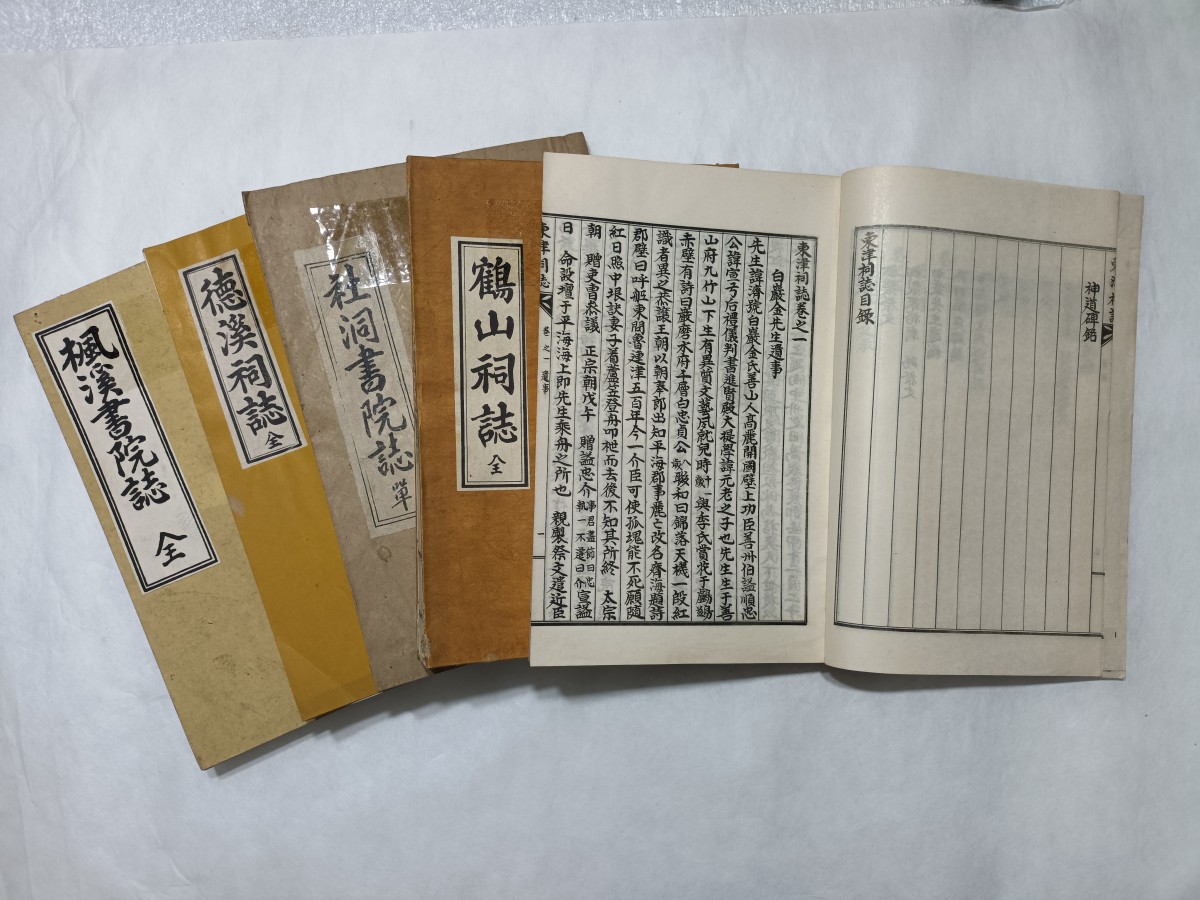 楓溪書院誌 全
德溪祠誌 全
社洞書院誌 單
鶴山祠誌 全
東津祠誌目錄
神道碑銘
東津祠誌卷之一
白巖金先生遺事
先生諱濟號白巖金氏善山人高麗開國壁上功臣善州伯諡順忠
公諱宣弓后禮儀判書進賢殿大提學諱元老之子也先生生于善
山府九竹山下生有異質文藝夙就兒時十一歲與李氏賞花于
赤壁有詩曰巖磨水府千層白忠貞公八歲聯和曰錦落天機一段紅
識者異之恭讓王朝以朝奉郎出知平海郡事麗亡改名齊海題詩
郡壁曰呼船東問魯連津五百年今一介臣可使孤魂能不死願隨
紅日照中垠訣妻子着蘆笠登舟叩枻而去後不知其所終 太宗
朝 贈吏曹參議 正宗朝戊午 贈諡忠介事君盡節曰忠執一不遷曰介宣諡
日 命設壇于平海海上即先生乘舟之所也 親製祭文遣近臣
東津祠誌 卷之一 遺事 一